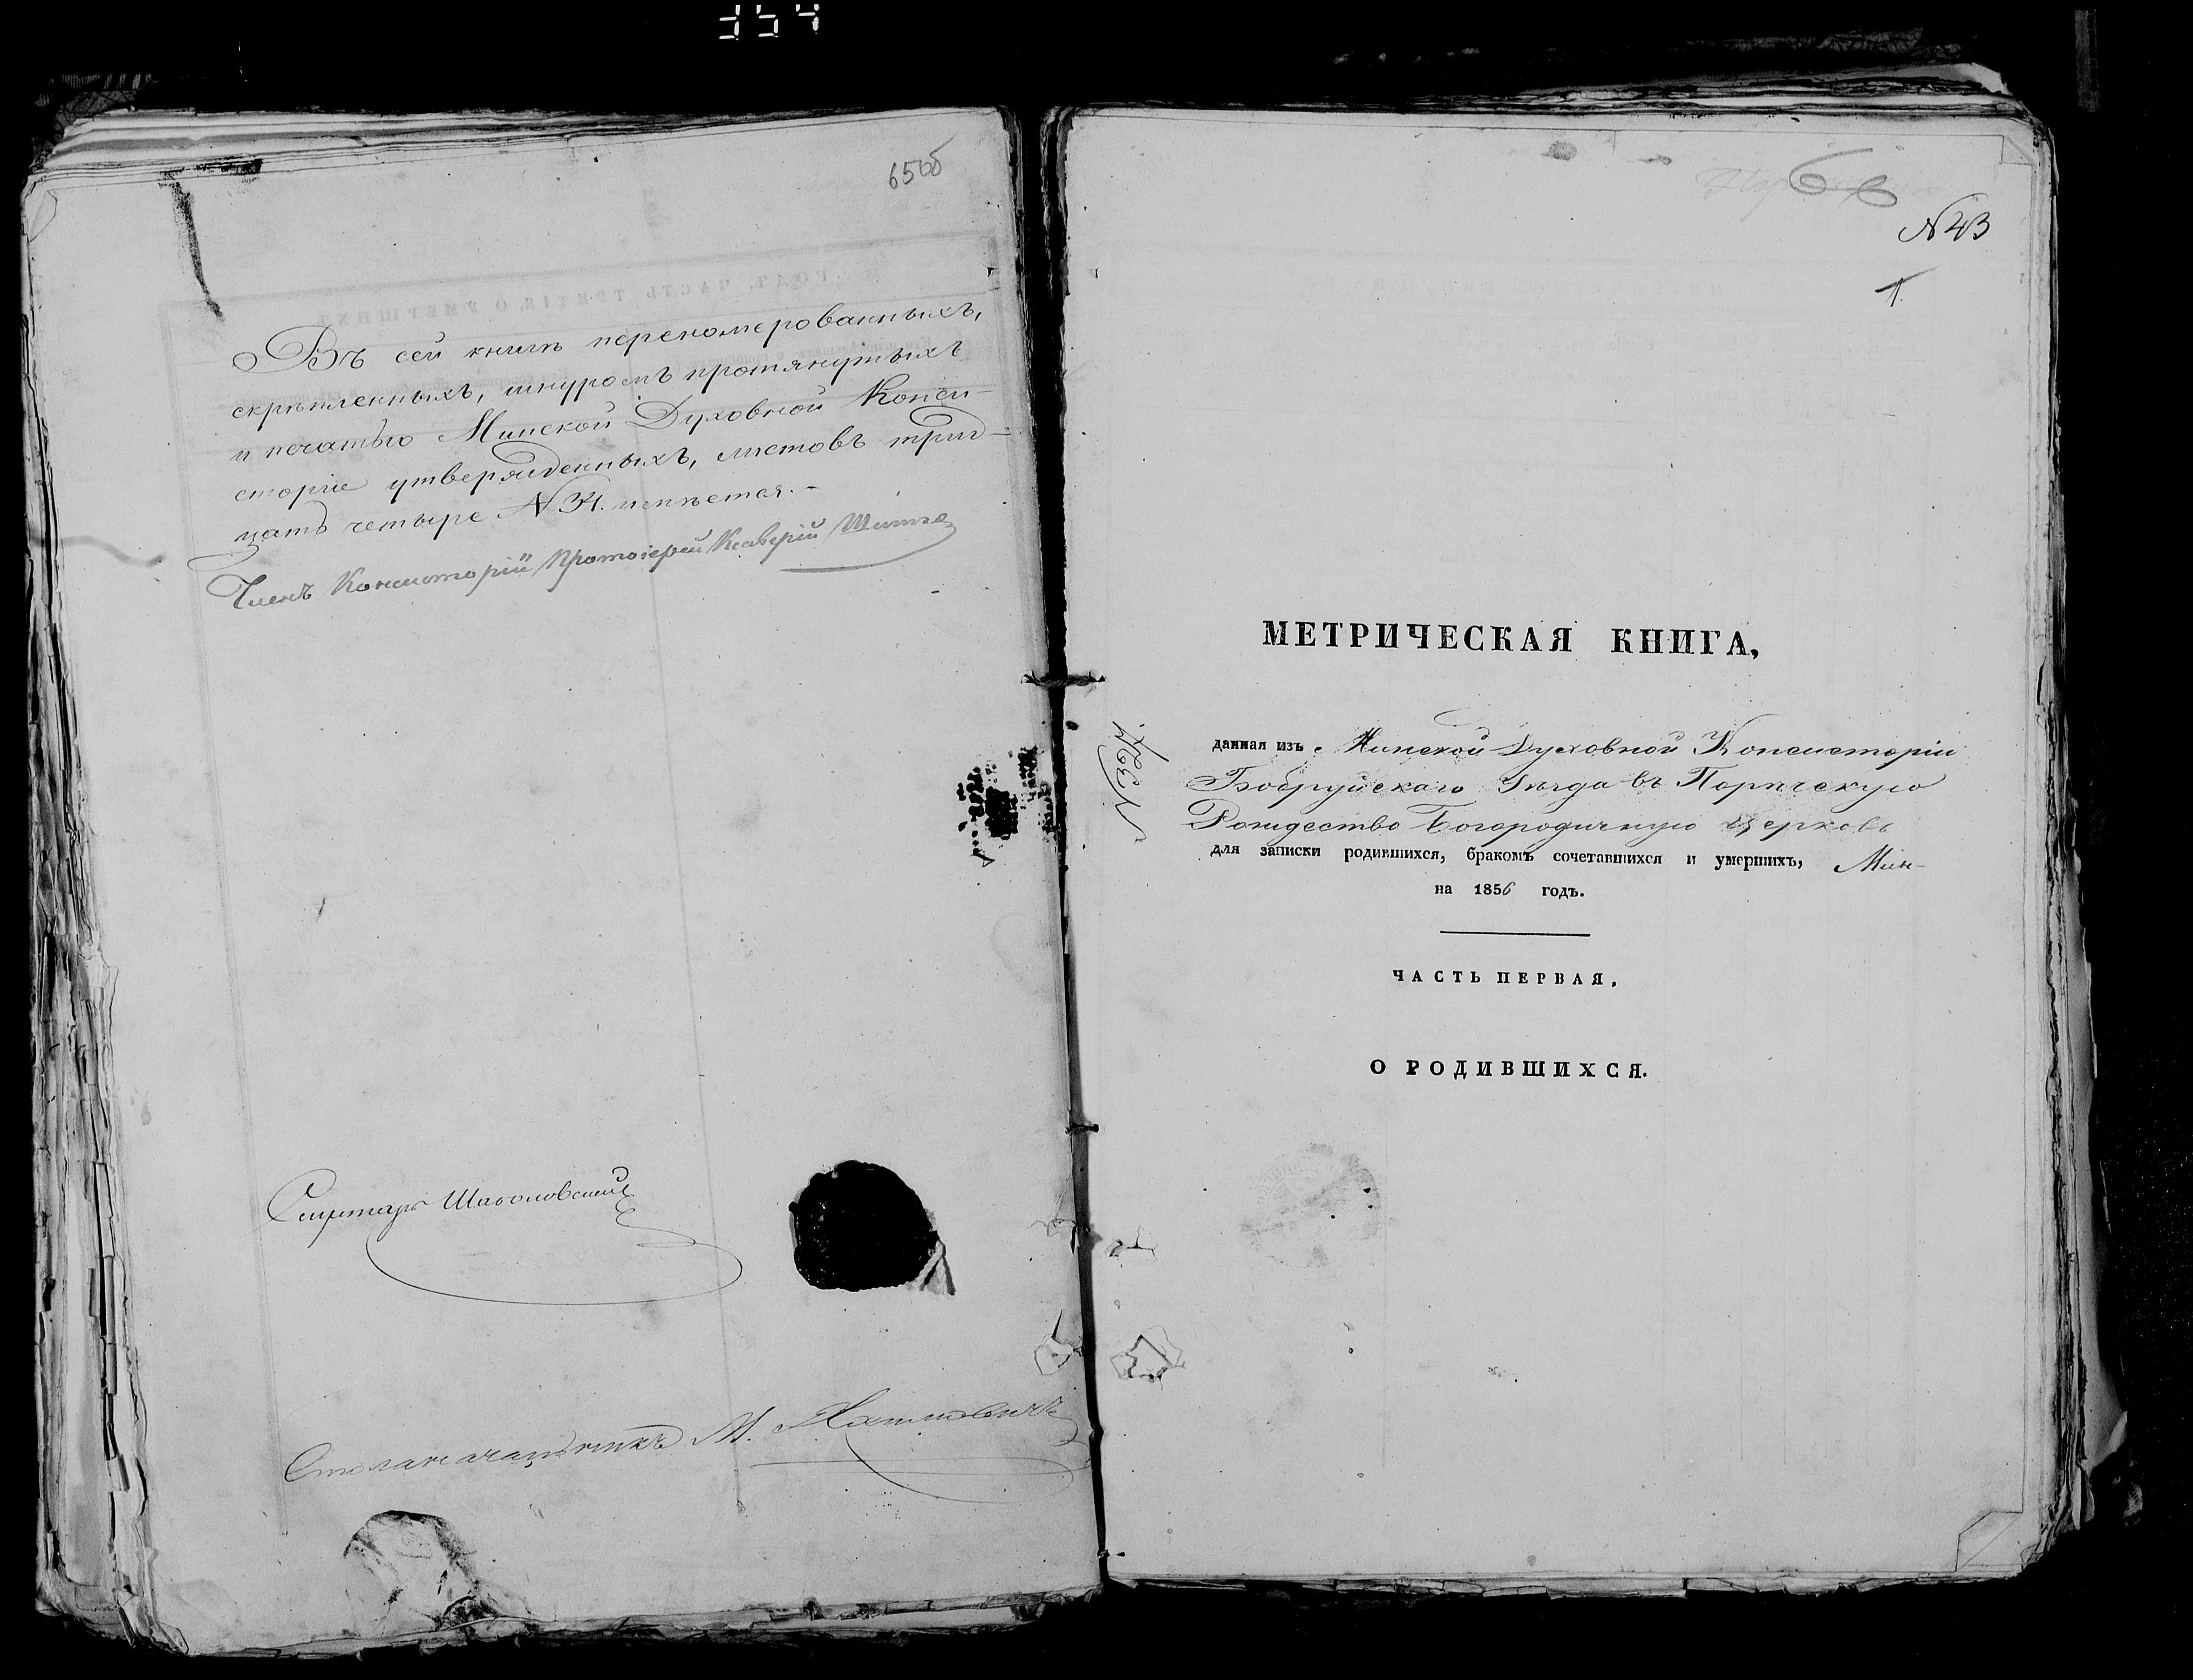 354
65об
Въ сей книгѣ переномерованныхъ,
скрѣпленныхъ, шнуромъ протянутыхъ
и печатью Минской Духовной Конси-
сторіи утвержденныхъ, листовъ трид-
цать четыре № 34. имѣется.-
Членъ Консисторіи Протоіерей Ксаверій
Секретарь
Столоначальникъ М.
66
№ 43
1.
МЕТРИЧЕСКАЯ КНИГА,
данная изъ Минской Духовной Консисторіи
Бобруйскаго Уѣзда въ Паричскую
Рождество Богородичную церковь
для записки родившихся, бракомъ сочетавшихся и умершихъ,
на 1856 годъ.
ЧАСТЬ ПЕРВАЯ,
О РОДИВШИХСЯ.